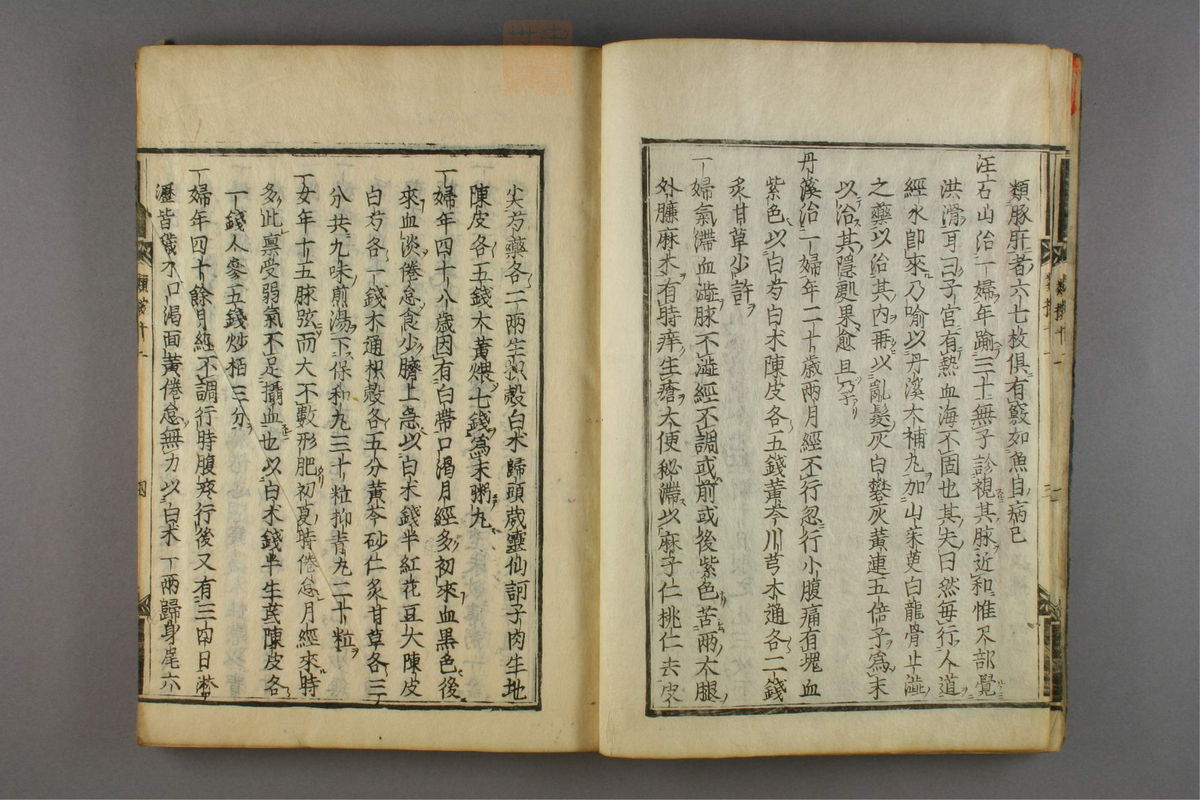 類豚肝者六七枚俱有竅如魚目病已
汪石山治一婦年踰三十無子診視其脉近和惟尺部覺
洪滑耳曰子宮有熱血海不固也其夫曰然每行人道
經水卽來乃喻以丹溪大補丸加山茱萸白龍骨止澁
之藥以治其內再以亂髮灰白礬灰黃連五倍子為末
以治其隱處果愈且孕
丹溪治一婦年二十歲兩月經不行忽行小腹痛有塊血
紫色以白芍白朮陳皮各五錢黃芩川芎木通各二錢
炙甘草少許
一婦氣滯血澁脉不澁經不調或前或後紫色苦兩大腿
外臁麻木有時痒生瘡大便秘滯以麻子仁桃仁去皮
尖芍藥各二兩生枳殼白朮歸頭葳靈仙訶子肉生地
陳皮各五錢大黃煨七錢為末粥丸
一婦年四十八歲因有白帶口渴月經多初來血黑色後
來血淡倦怠食少臍上急以白朮錢半紅花豆大陳皮
白芍各一錢木通枳殼各五分黃芩砂仁炙甘草各三
分共九味煎湯下保和丸三十粒抑青丸二十粒
一女年十五脉弦而大不數形肥初夏時倦怠月經來時
多此禀受弱氣不足攝血也以白朮錢半生芪陳皮各
一錢人參五錢炒栢三分
一婦年四十餘月經不調行時腹疼行後又有三四日淋
瀝皆穢水口渴面黃倦怠無力以白朮一兩歸身尾六